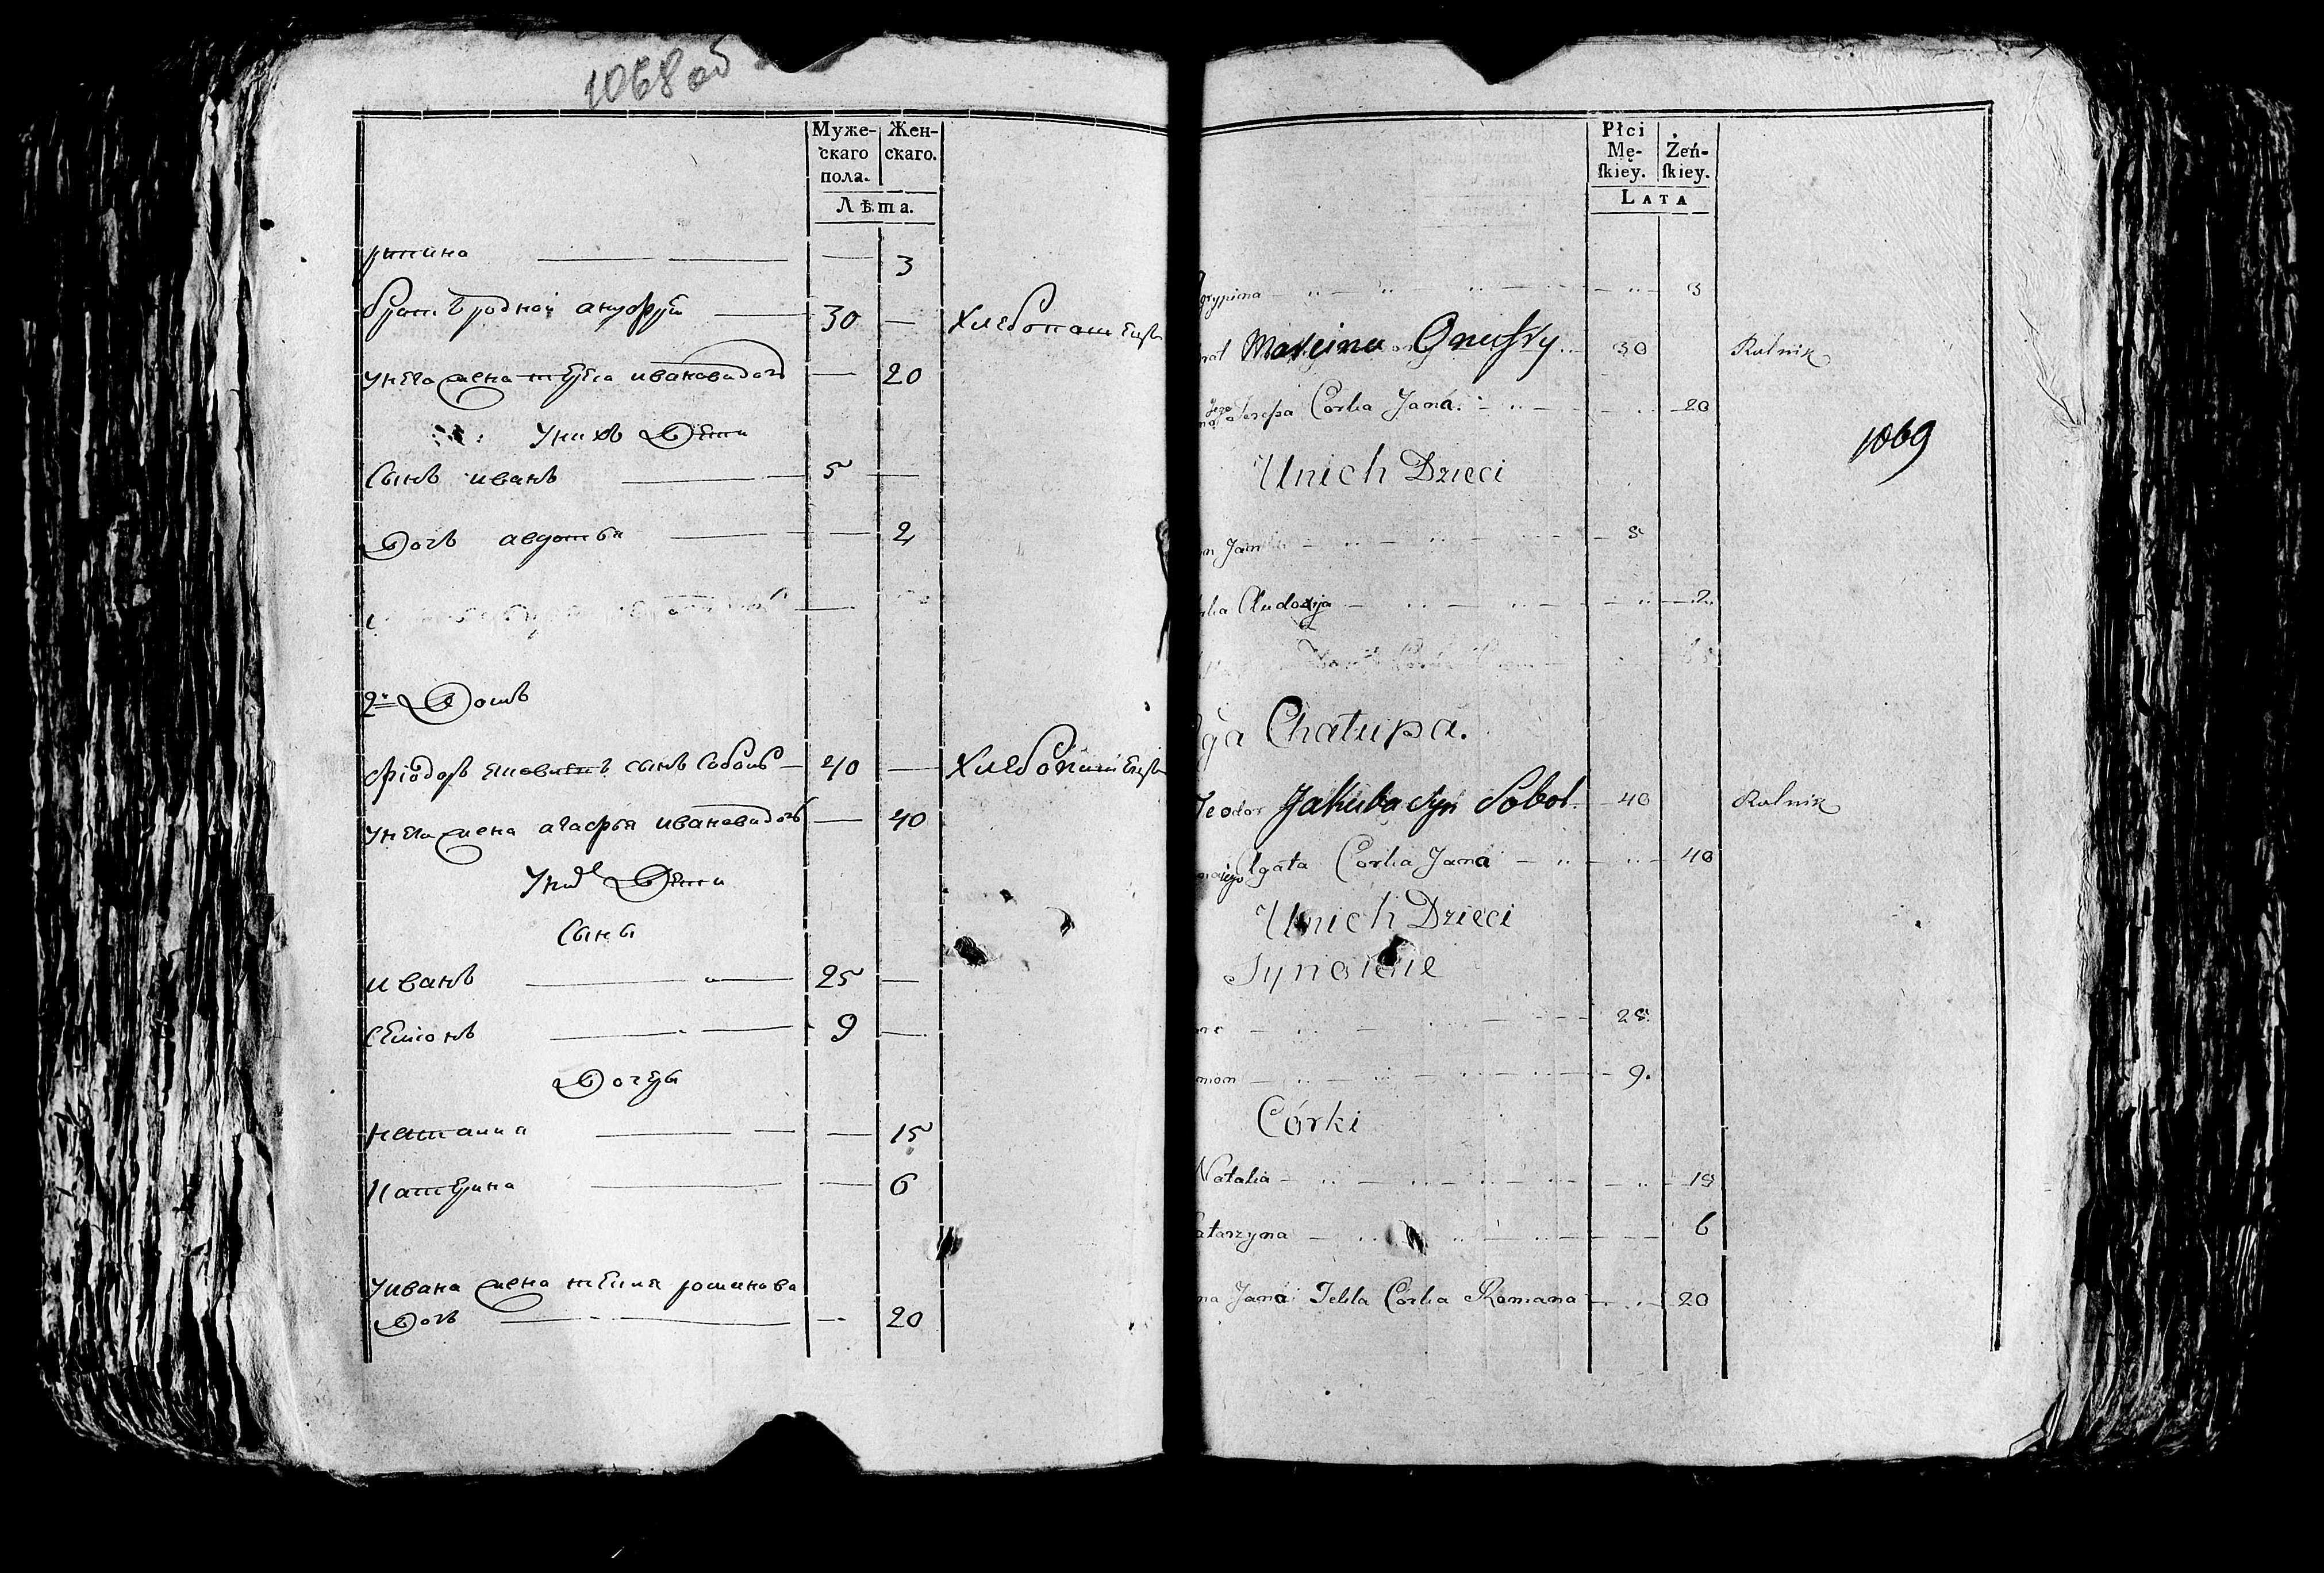 1068 об
Муже-
скаго
пола.
Жен-
скаго.
Лѣта.
3
брат родной ануфрей 30 — Хлебопашец
унего жена иванова дочь — 20
уних дети
сынъ иванъ 5 —
дочь авдотья — 2
2й домъ
фіодоръ сынъ соболь 40 — Хлебопашец
унего жена агафья иванова дочь — 40
уних дети
сыны
иванъ 25 —
семіонъ 9 —
дочеры
наталия — 15
катерина — 6
уивана жена текля романова
дочь — 20
Płci
Mę-
ſkiey.
Żeń-
ſkiey.
LATA
1069
grypina 3
rat Onufry 30 Rolnik
Córka Jana 20
Unich Dzieci
n Jan 5
rka Audoxija 2
ga Chałupa.
Teodor Jakuba syn Sobol 40 Rolnik
na iego Agata Córka Jana 40
Unich Dzieci
Synowie
25
mon 9.
Córki
Natalia 15
atarzyna 6
na Jana Tekla Córka Romana 20